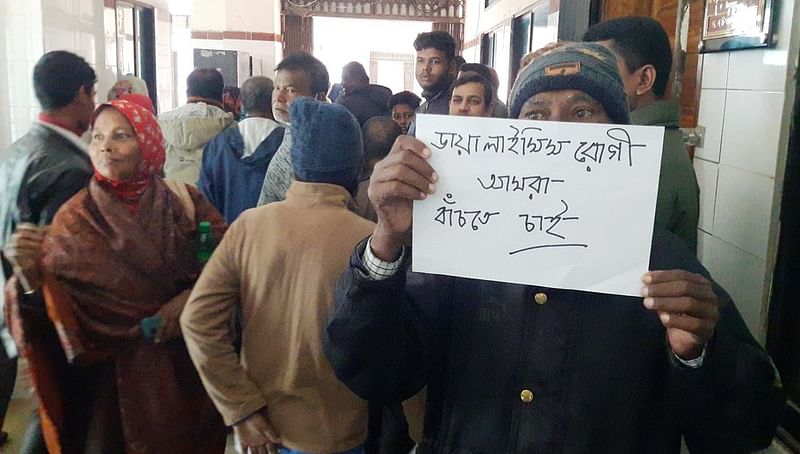 ডায়ালাইসিস রোগী
আমরা
বাঁচতে চাই-